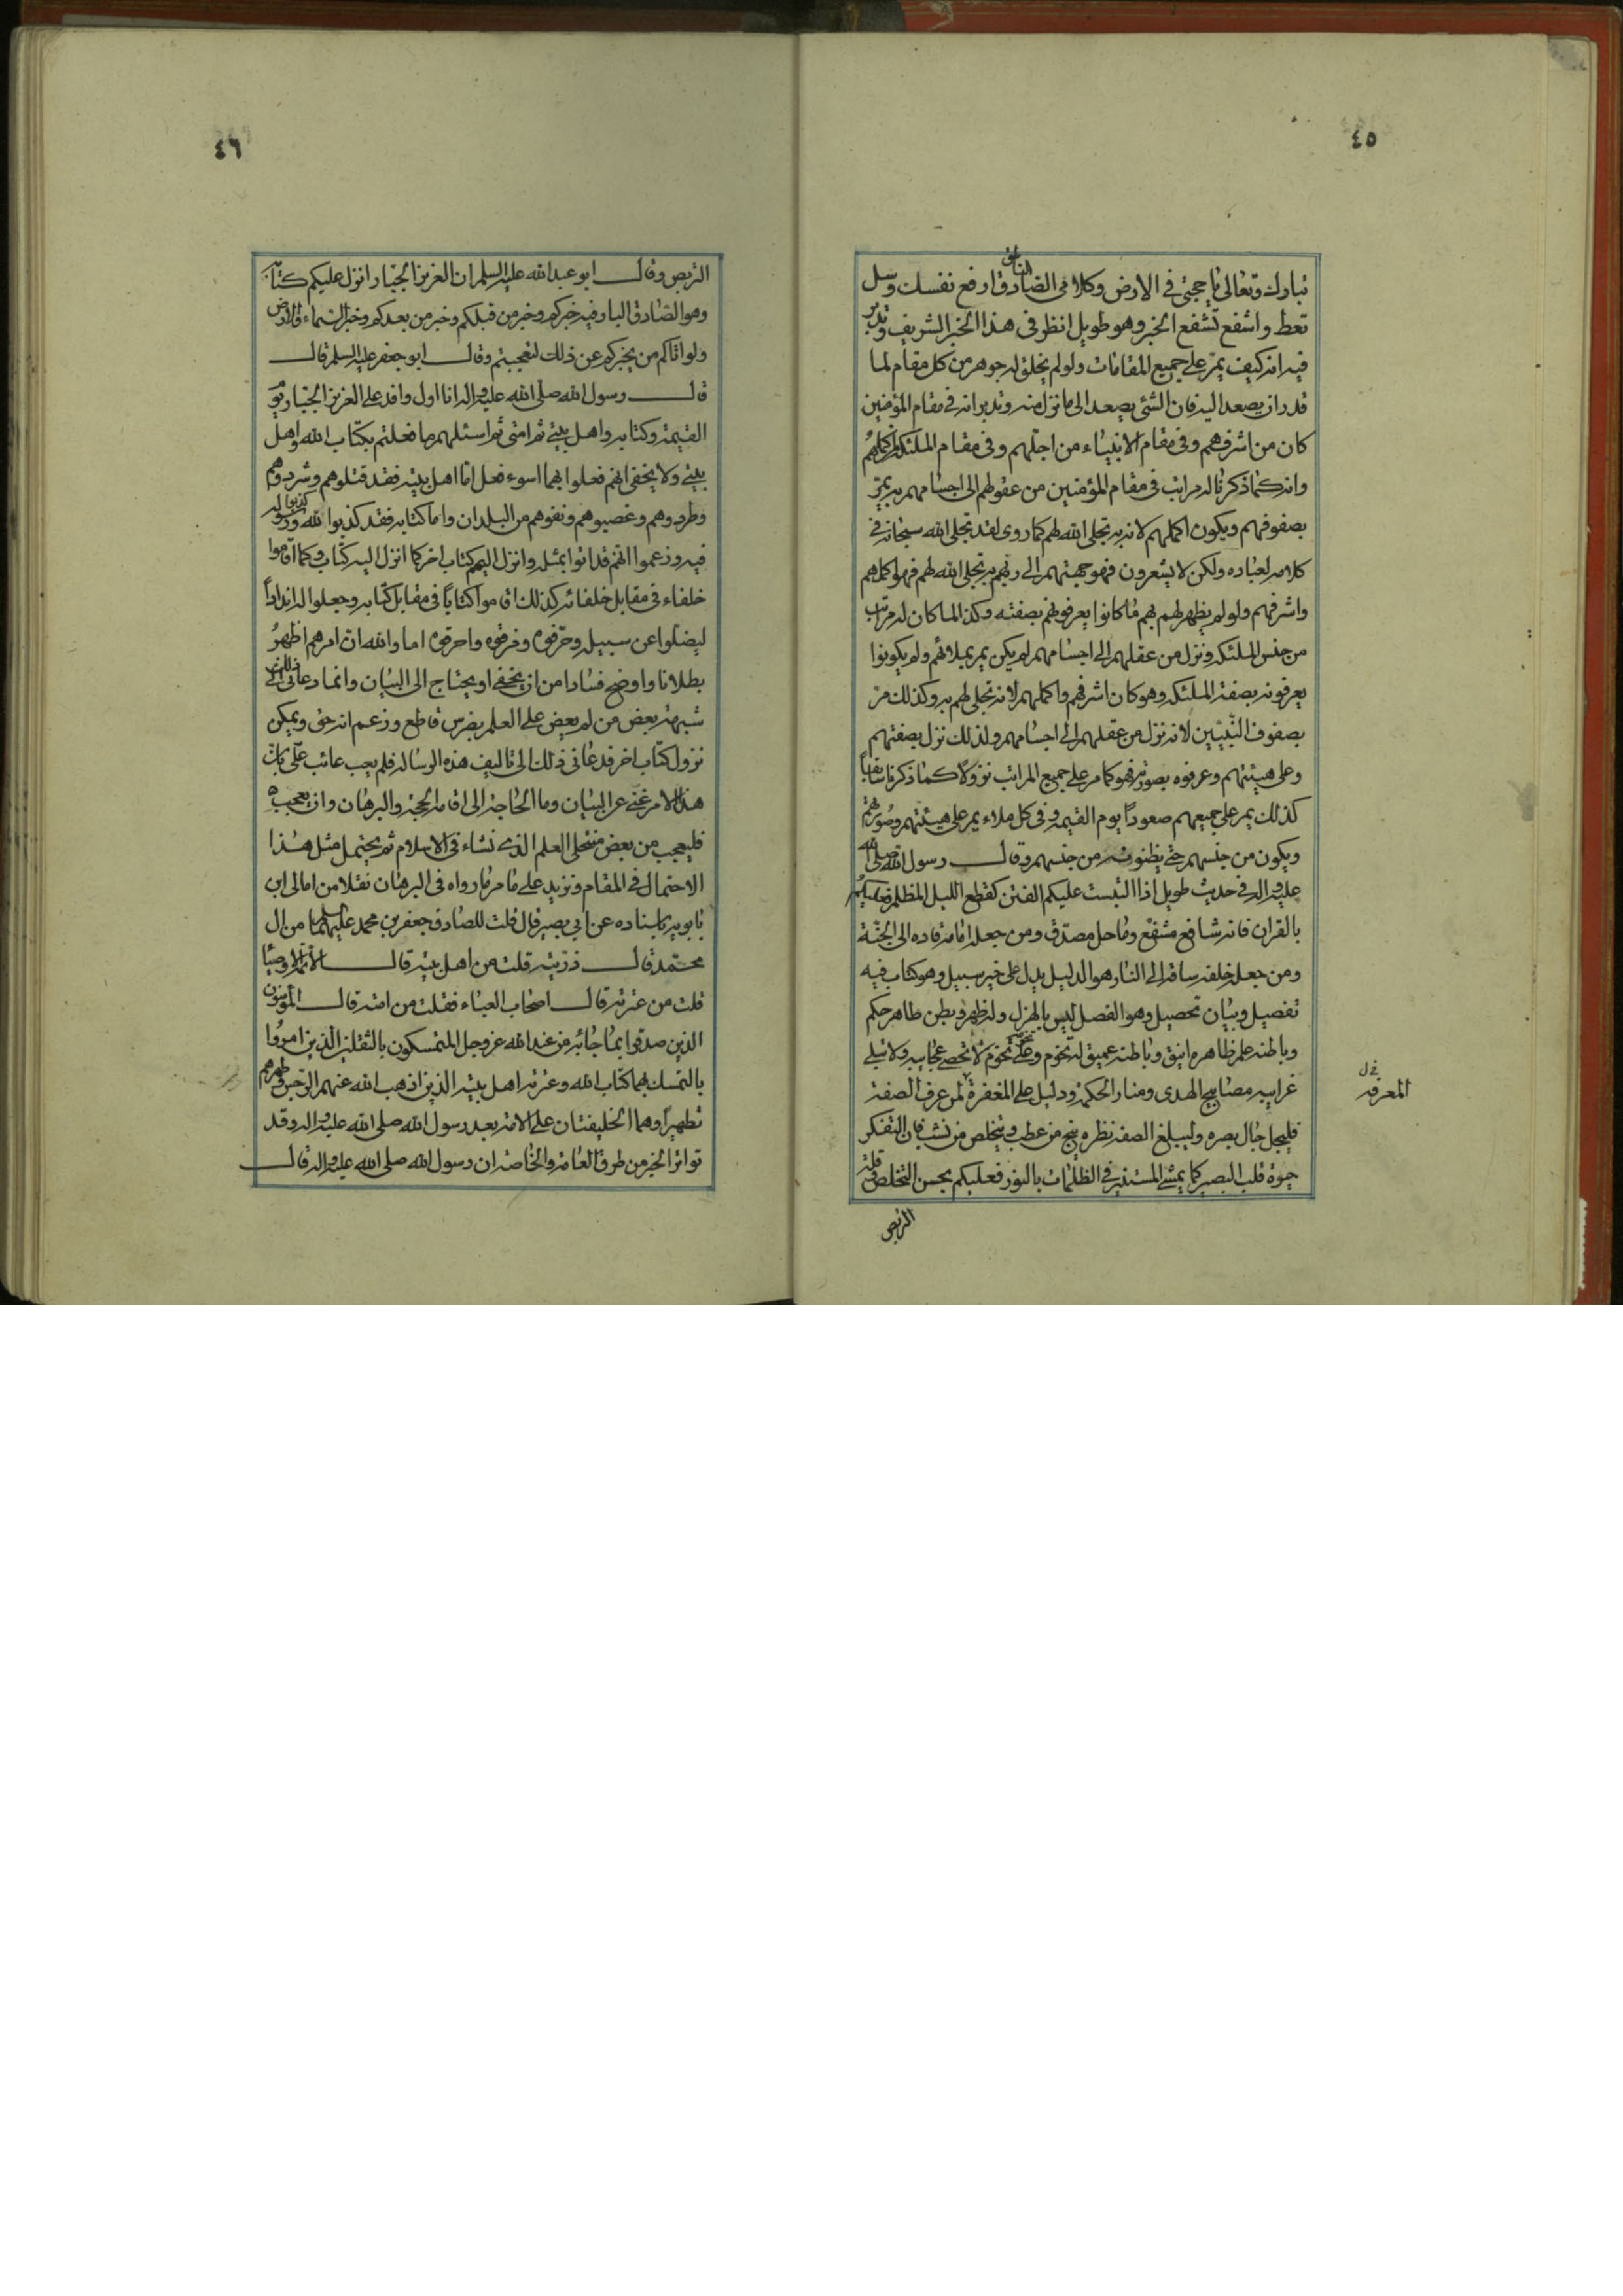 ٤٥
تبارك وتعالى يا حجتي في الارض وكلامي الصادق الناطق ارفع نفسك وسل
تعط واشفع تشفع الخبر وهو طويل انظر في هذا الخبر الشريف وتدبر
فيه انه كيف يمر على جميع المقامات ولو لم يخلق له جوهر من كل مقام لما
قدر ان يصعد اليه فان الشئ يصعد الى ما نزل منه وتدبر انه في مقام المؤمنين
كان من اشرفهم وفي مقام الانبياء من اجلهم وفي مقام الملئكة اكملهم
وانه كما ذكرنا له مراتب في مقام المؤمنين من عقولهم الى اجسامهم به يمر
بصفوفهم ويكون اكملهم لانه به تجلى الله لهم كما روى لقد تجلى الله سبحانه في
كلامه لعباده ولكن لا يشعرون فهو جهتهم الى ربهم به تجلى الله لهم فهو اكملهم
واشرفهم ولو لم يظهر لهم بهم ما كانوا يعرفونهم بصفته وكذا لما كان له مراتب
من جنس الملئكة ونزل من عقلهم الى اجسامهم لم يكن يمر بملائهم ولم يكونوا
يعرفونه بصفة الملئكة وهو كان اشرفهم واكملهم لانه تجلى لهم به وكذلك مر
بصفوف النبيين لانه نزل من عقلهم الى اجسامهم ولذلك نزل بصفتهم
وعلى هيئتهم وعرفوه بصورته فهو كما مر على جميع المراتب نزولا كما ذكرنا سابقاً
كذلك يمر على جميعهم صعوداً يوم القيمة وفي كل ملاء يمر على هيئتهم وصورتهم
ويكون من جنسهم حتى يظنونه من جنسهم وقال رسول الله صلى الله
عليه واله في حديث طويل اذا التبست عليكم الفتن كقطع الليل المظلم فعليكم
بالقران فانه شافع مشفع وماحل مصدق ومن جعله امامه قاده الى الجنة
ومن جعله خلفه ساقه الى النار هو الدليل يدل على خير سبيل وهو كتاب فيه
تفصيل وبيان تحصيل وهو الفصل ليس بالهزل وله ظهر وبطن ظاهر حكم
وباطنه علم ظاهره انيق وباطنه عميق له تخوم وعلى تخومه تخوم لا تحصى عجايبه ولا تبلى
غرايبه مصابيح الهدى ومنار الحكمة ودليل على المغفرة لمن عرف الصفة
فليجل جال بصره وليبلغ الصفة نظره ينج من عطب ويتخلص من نشب فان التفكر
حيوة قلب البصير كما يمشى المستنير في الظلمات بالنور فعليكم بحسن التخلص وقلة
التربص
المعرفة خ ل
٤٦
التربص وقال ابو عبد الله عليه السلم ان العزيز الجبار انزل عليكم كتابه
وهو الصادق البار فيه خبركم وخبر من قبلكم وخبر من بعدكم وخبر السماء والارض
ولو اتاكم من يخبركم عن ذلك لتعجبتم وقال ابو جعفر عليه السلم قال
قال رسول الله صلى الله عليه واله انا اول وافد على العزيز الجبار يوم
القيمة وكتابه واهل بيتي ثم امتي ثم اسئلهم ما فعلتم بكتاب الله واهل
بيتي ولا يخفى انهم فعلوا بهما اسوء فعل اما اهل بيته فقد قتلوهم وشردوهم
وطردوهم وغصبوهم ونفوهم من البلدان واما كتابه فقد كذبوا الله ورسوله
فيه وزعموا انهم قد اتوا بمثله وانزل اليهم كتاب اخر كما انزل اليه كتاب وكما اقاموا
خلفاء في مقابل خلفائه كذلك اقاموا كتاباً في مقابل كتابه وجعلوا له انداداً
ليضلوا عن سبيله وحرفوه وفرقوه واحرقوه اما والله ان امرهم اظهر
بطلانا واوضح فسادا من ان يخفى او يحتاج الى البيان وانما دعاني ذلك الى
شبهة بعض من لم يعض على العلم بضرس قاطع وزعم انه حق ويمكن
نزول كتاب اخر فدعاني ذلك الى تاليف هذه الرسالة فلم يعب عائب علي بان
هذا الامر غني عن البيان وما الحاجة الى اقامة الحجة والبرهان وان يعجب
فليعجب من بعض منتحلي العلم الذي نشاء في الاسلام ثم يحتمل مثل هذا
الاحتمال في المقام ونزيد على ما مر ما رواه في البرهان نقلا من امالي ابن
بابويه باسناده عن ابي بصير قال قلت للصادق جعفر بن محمد عليهما السلم من ال
محمد قال ذريته قلت من اهل بيته قال الائمة الاوصياء
قلت من عترته قال اصحاب العباء فقلت من امته قال المؤمنون
الذين صدقوا بما جاء به من عند الله عز وجل المتمسكون بالثقلين الذين امروا
بالتمسك بهما كتاب الله وعترته اهل بيته الذين اذهب الله عنهم الرجس وطهرهم
تطهيراً وهما الخليفتان على الامة بعد رسول الله صلى الله عليه واله وقد
تواتر الخبر من طرق العامة والخاصة ان رسول الله صلى الله عليه واله قال